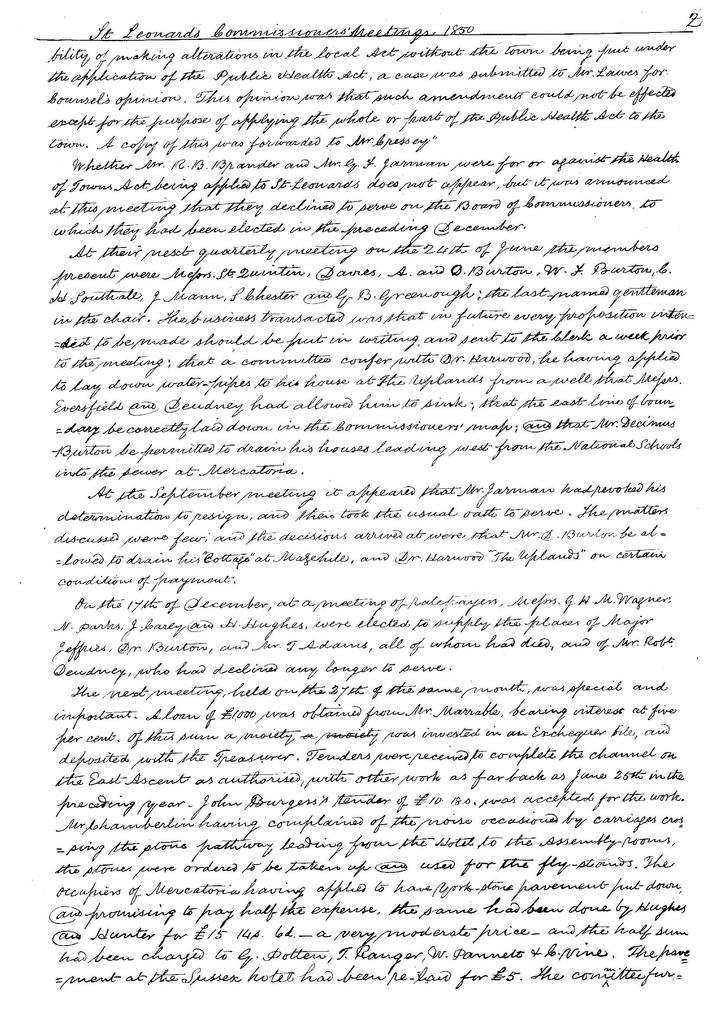 St Leonards Commissioners' Meetings 1850 2
bility of making alterations in the local Act without the town being put under
the application of the Public Health Act, a case was submitted to Mr. Lawes for
Counsel's opinion. This opinion was that such amendments could not be effected
except for the purpose of applying the whole or part of the Public Health Act to the
town. A copy of this was forwarded to Mr. Cressey"
Whether Mr. R. B. Brander and Mr. G. F. Jarman were for or against the Health
of Towns Act, being applied to St Leonards does not appear, but it was announced
at this meeting that they declined to serve on the Board of Commissioners, to
which they had been elected in the preceding December.
At their next quarterly meeting on the 24th of June the members
present were Messrs. St. Quintin, Davies, A. and D. Burton, W. F. Burton, C.
H Southall, J Mann, S. Chester and G. B. Greenough; the last-named gentleman
in the chair. The business transacted was that in future every proposition inten=
=ded to be made should be put in writing and sent to the Clerk a week prior
to the meeting; that a committee confer with Dr. Harwood, he having applied
to lay down water-pipes to his house at The Uplands from a well that Messrs.
Eversfield and Deudney had allowed him to sink; that the east line of boun-
=dary be correctly laid down in the Commissioners' map; and that Mr. Decimus
Burton be permitted to drain his houses leading west from the National Schools
into the sewer at Mercatoria.
At the September meeting it appeared that Mr. Jarman had revoked his
determination to resign, and then took the usual oath to serve. The matters
discussed were few; and the decisions arrived at were that Mr. D. Burton be al=
=lowed to drain his "Cottage" at Mazehill, and Dr. Harwood "The Uplands" on certain
conditions of payment.
On the 17th of December, at a meeting of ratepayers, Messrs. G. H. M. Wagner,
N. Parks, J. Carey and H. Hughes, were elected to supply the places of Major
Jeffries, Dr. Burton, and Mr. T Adams, all of whom had died, and of Mr. Robt.
Deudney, who had declined any longer to serve.
The next meeting, held on the 27th of the same month, was special and
important. A loan of £1000 was obtained from Mr. Marrable, bearing interest at five
per cent. Of this sum a moiety a moiety was invested in an Exchequer bill, and
deposited with the Treasurer. Tenders were received to complete the channel on
the East Ascent as authorised, with other work as far back as June 25th in the
preceding year. John Burgess's tender of £10 18s. was accepted for the work.
Mr. Chamberlin having complained of the noise occasioned by carriages cros=
=sing the stone pathway leading from the Hotel to the Assembly-rooms,
the stones were ordered to be taken up and used for the fly-stands. The
occupiers of Mercatoria having applied to have York-stone pavement put down,
and promising to pay half the expense, the same had been done by Hughes
and Hunter for £15 14s. 6d. — a very moderate price — and the half sum
had been charged to G. Potten, T. Ranger, W. Pannett & C. Vine. The pave
=ment at the Sussex hotel had been re-laid for £5. The committee fur=